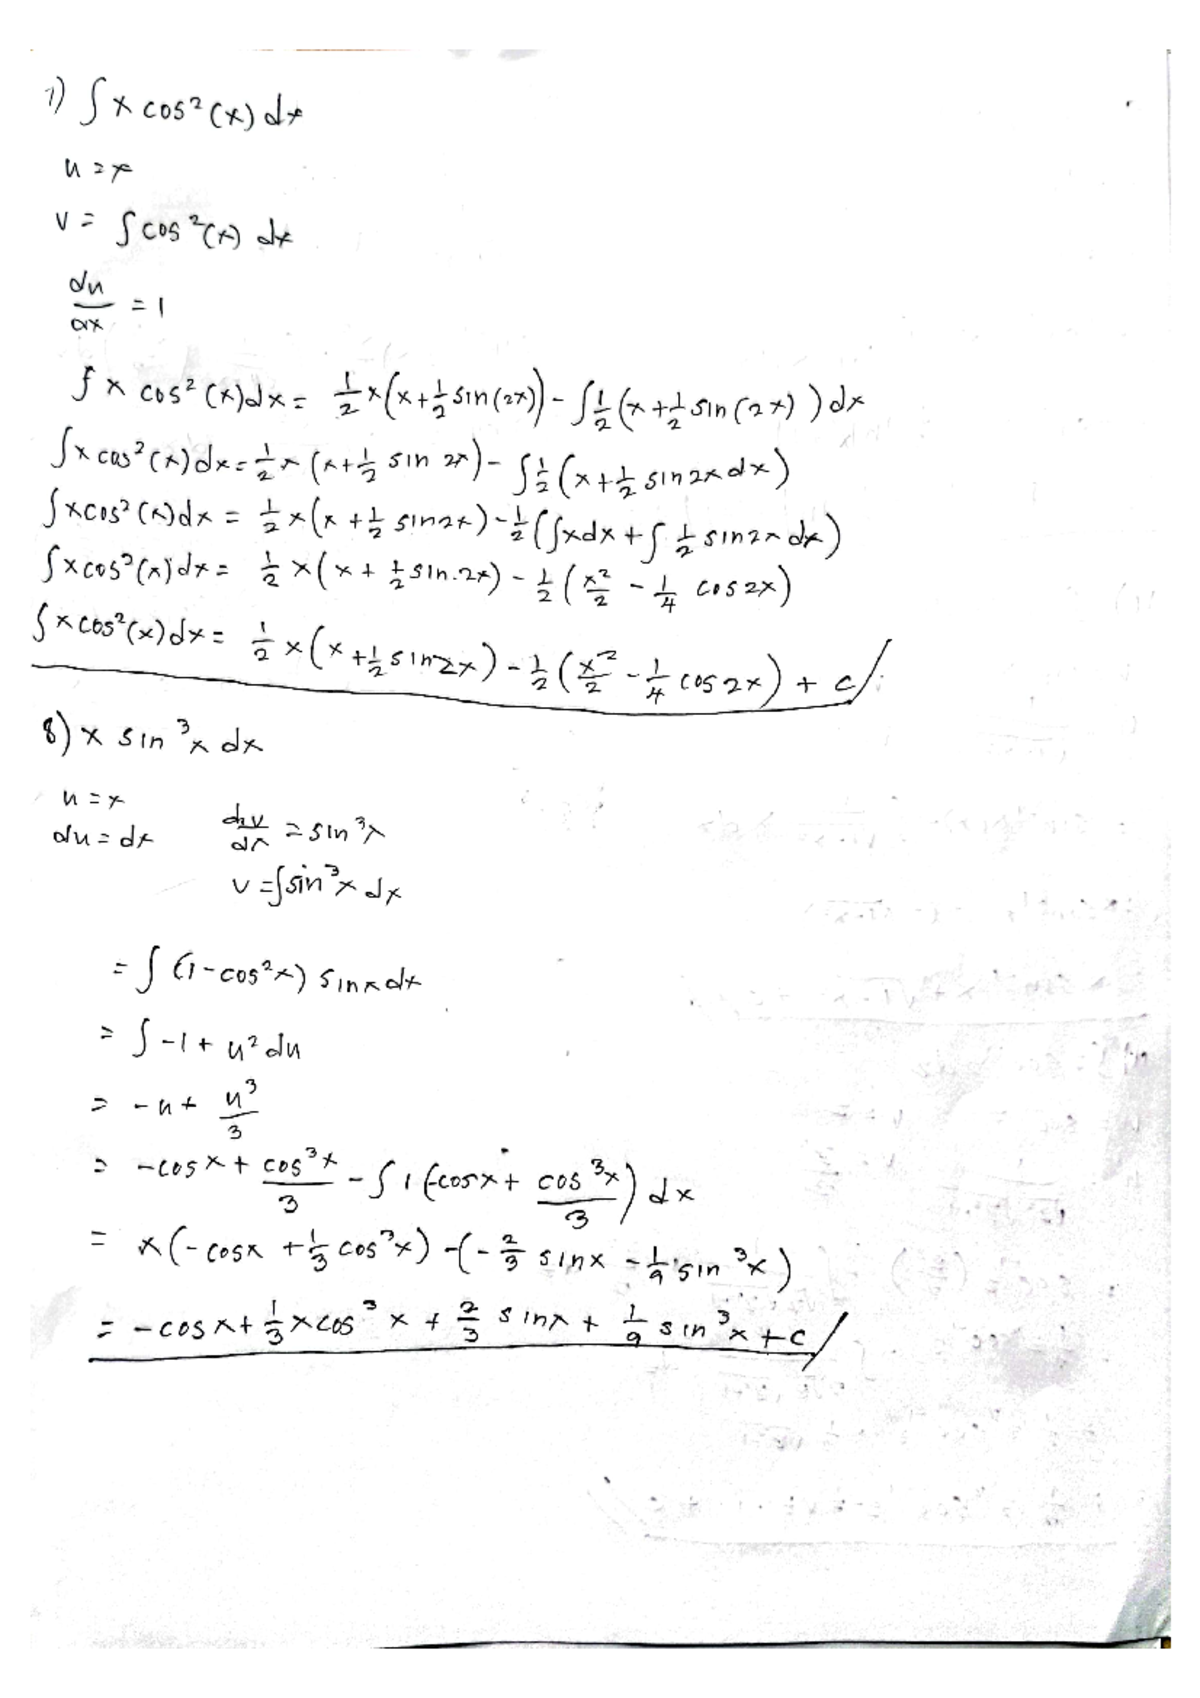 1) ∫ x cos² (x) dx
u = x
v = ∫ cos² (x) dx
du/dx = 1
∫ x cos² (x) dx = 1/2 x (x + 1/2 sin (2x)) - ∫ 1/2 (x + 1/2 sin (2x)) dx
∫ x cos² (x) dx = 1/2 x (x + 1/2 sin 2x) - ∫ 1/2 (x + 1/2 sin 2x dx)
∫ x cos² (x) dx = 1/2 x (x + 1/2 sin 2x) - 1/2 (∫ x dx + ∫ 1/2 sin 2x dx)
∫ x cos² (x) dx = 1/2 x (x + 1/2 sin 2x) - 1/2 (x²/2 - 1/4 cos 2x)
∫ x cos² (x) dx = 1/2 x (x + 1/2 sin 2x) - 1/2 (x²/2 - 1/4 cos 2x) + c //
8) x sin ³x dx
u = x
du = dx
dv/dx = sin ³x
v = ∫ sin ³x dx
= ∫ (1 - cos² x) sin x dx
= ∫ -1 + u² du
= -u + u³/3
= -cos x + cos ³x/3 - ∫ 1 (-cos x + cos ³x/3) dx
= x (-cos x + 1/3 cos ³x) - (-2/3 sin x - 1/9 sin ³x)
= -cos x + 1/3 x cos ³ x + 2/3 sin x + 1/9 sin ³x + c //